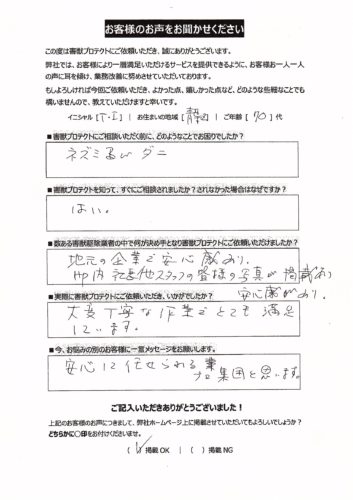 お客様のお声をお聞かせください
この度は害獣プロテクトにご依頼いただき、誠にありがとうございます。
弊社では、お客様により一層満足いただけるサービスを提供できるように、お客様お一人一人
の声に耳を傾け、業務改善に努めさせていただいております。
もしよろしければ今回ご依頼いただき、よかった点、嬉しかった点など、どのような些細なことでも
構いませんので、教えていただけますと幸いです。
イニシャル [ T・I ] お住まいの地域 [ 静岡 ] ご年齢 [ 70 ] 代
■害獣プロテクトにご相談いただく前に、どのようなことでお困りでしたか?
ネズミ ダニ
■害獣プロテクトを知って、すぐにご相談されましたか?されなかった場合はなぜですか?
はい。
■数ある害獣駆除業者の中で何が決め手となり害獣プロテクトにご依頼いただけましたか?
地元の企業で安心感あり。
社長他スタッフの皆様の写真が掲載あり
安心感があり。
■実際に害獣プロテクトにご依頼いただき、いかがでしたか?
大変丁寧な作業でとても満足
しています。
■今、お悩みの別のお客様に一言メッセージをお願いします。
安心して任せられる
プロ集団と思います。
ご記入いただきありがとうございました!
上記のお客様のお声につきまして、弊社ホームページ上に掲載させていただいてもよろしいでしょうか?
どちらかに○印をお付けくださいませ。
( ) 掲載OK | ( ) 掲載NG